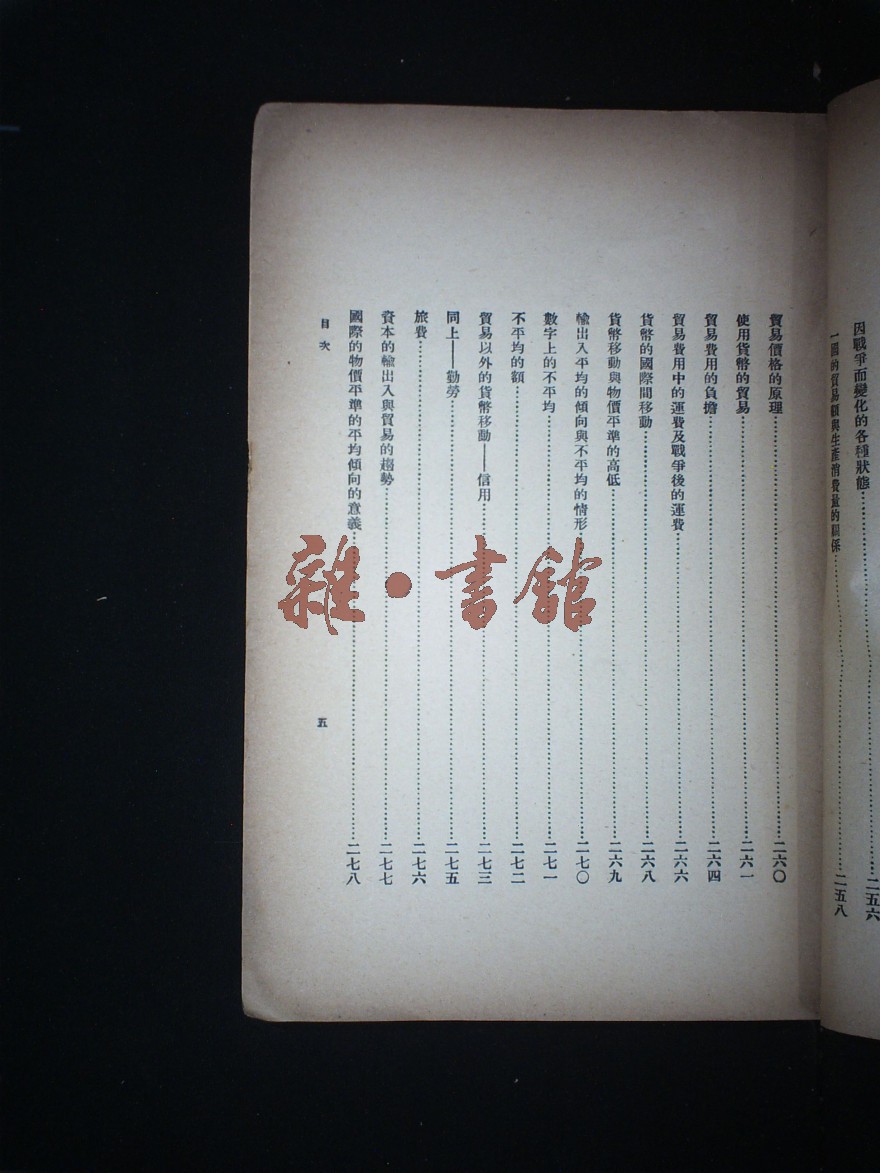 因戰爭而變化的各種狀態……二五六
一國的貿易額與生產消費量的關係……二五八
貿易價格的原理……二六〇
使用貨幣的貿易……二六一
貿易費用的負擔……二六四
貿易費用中的運費及戰爭後的運費……二六六
貨幣的國際間移動……二六八
貨幣移動與物價平準的高低……二六九
輸出入平均的傾向與不平均的情形……二七〇
數字上的不平均……二七一
不平均的額……二七二
貿易以外的貨幣移動——信用……二七三
同上——勤勞……二七五
旅費……二七六
資本的輸出入與貿易的趨勢……二七七
國際的物價平準的平均傾向的意義……二七八
目次
五
雜·書館